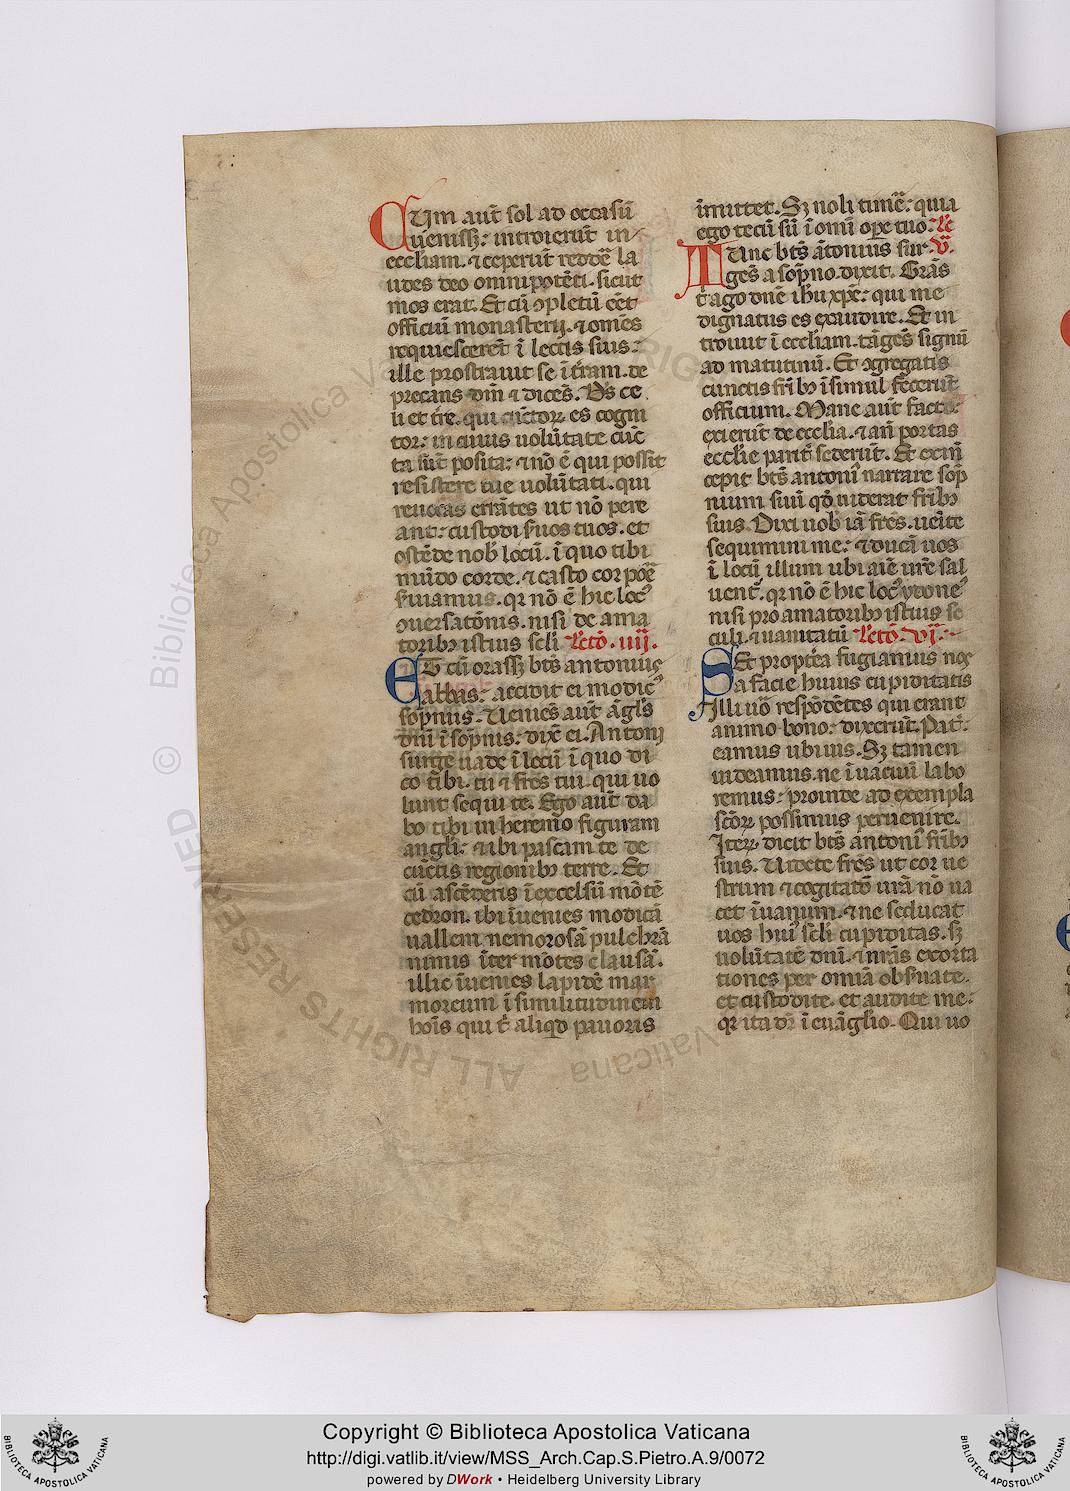 Cum aut̃ sol ad occasũ
ueniss&: introierũt in
eccliam. ⁊ ceperũt reddẽ la
udes deo omnipotẽti. sicut
mos erat. Et cũ ꝯpletũ eẽt
officiũ monasterij. ⁊ omẽs
requiescerẽt ĩ lectis suis:
ille prostrauit se ĩ tr̃am. de
precans dñ̃ ⁊ dicẽs. Ds̃ ce
li et tr̃e. qui cũctoꝝ es cogni
tor: in cuius uolũtate cũc
ta sũt posita: ⁊ nõ ẽ qui possit
resistere tue uolũtati. qui
reuocas errãtes ut nõ pere
ant: custodi ẜuos tuos. et
ostẽde nob̃ locũ. ĩ quo tibi
mũdo corde. ⁊ casto corpoꝛẽ
ẜuiamus. qꝛ nõ ẽ hic locꝰ
ꝯuersatõnis. nisi de ama
toribꝫ istius scl̃i Lectõ. iiij.
ET cũ orass& bt̃s antonius
abbas: accidit ei modicꝰ
sop̃nus. Veniẽs aut̃ ãgl̃s
dñi ĩ sop̃nis: dix̃ ei. Antoni
surge uade ĩ locũ ĩ quo di
co tibi. tu ⁊ fr̃es tui. qui uo
lunt sequi te. Ego aut̃ da
bo tibi in heremo figuram
angl̃i: ⁊ ibi pascam te de
cũctis regionibꝫ terre. Et
cũ ascẽderis ĩ excelsũ mõtẽ
cedron. ibi ĩuenies modicã
uallem nemorosã pulchrã
nimis ĩter mõtes clausã.
illic ĩuenies lapidẽ mar
moreum ĩ similitudinem
hoĩs qui t̃ aliqd pauoris
ĩmittet. Sꝫ noli timẽ: quia
ego tecũ sũ ĩ omĩ oꝑe tuo: Lc̃
Tunc bt̃s ãtonius sur v̈.
gẽs a sop̃no dixit. Gr̃as
t̃ ago dñe ihu xp̃e: qui me
dignatus es exaudire. Et in
troiuit ĩ eccliam. tãgẽs signũ
ad matutinũ. Et ꝯgregatis
cunctis fr̃ibꝫ ĩsimul fecerũt
officium. Mane aut̃ facto:
exierũt de ecclia. ⁊ añ portas
ecclie parit̃ sederũt. Et exim̃
cepit bt̃s antoniꝰ narrare sop̃
nium suũ qd̃ uiderat fr̃ibꝫ
suis. Dixi uob̃ iã fr̃es. ueñite
sequimini me: ⁊ ducã uos
ĩ locũ illum ubi aĩe nr̃e sal
uent̃. qꝛ nõ ẽ hic locꝰ ydoneꝰ
nisi pro amatoribꝫ istius se
culi. ⁊ uanitatũ Lectõ. vj.
Et propt̃ea fugiamus nos
a facie huius cupiditatis
Illi uõ respõdẽtes qui erant
animo bono: dixerũt. Pat̃:
eamus ubi uis. Sꝫ tamen
uideamus. ne ĩ uacuũ labo
remus: proinde ad exempla
sc̃oꝝ possimus peruenire.
Iteꝝ dicit bt̃s antoniꝰ fr̃ibꝫ
suis. Videte fr̃es ut cor ue
strum ⁊ cogitatõ ur̃a nõ ua
cet ĩ uanum. ⁊ ne seducat
uos huiꝰ scl̃i cupiditas. sꝫ
uolũtatẽ dñi. ⁊ mr̃as exorta
tiones per omnia obẜuate.
et custodite. et audite me:
qꝛ ita dr̃ ĩ euãglio. Qui uo
© Biblioteca Apostolica Vaticana
ALL RIGHTS RESERVED
Copyright © Biblioteca Apostolica Vaticana
http://digi.vatlib.it/view/MSS_Arch.Cap.S.Pietro.A.9/0072
powered by DWork • Heidelberg University Library
BIBLIOTECA APOSTOLICA VATICANA
BIBLIOTECA APOSTOLICA VATICANA